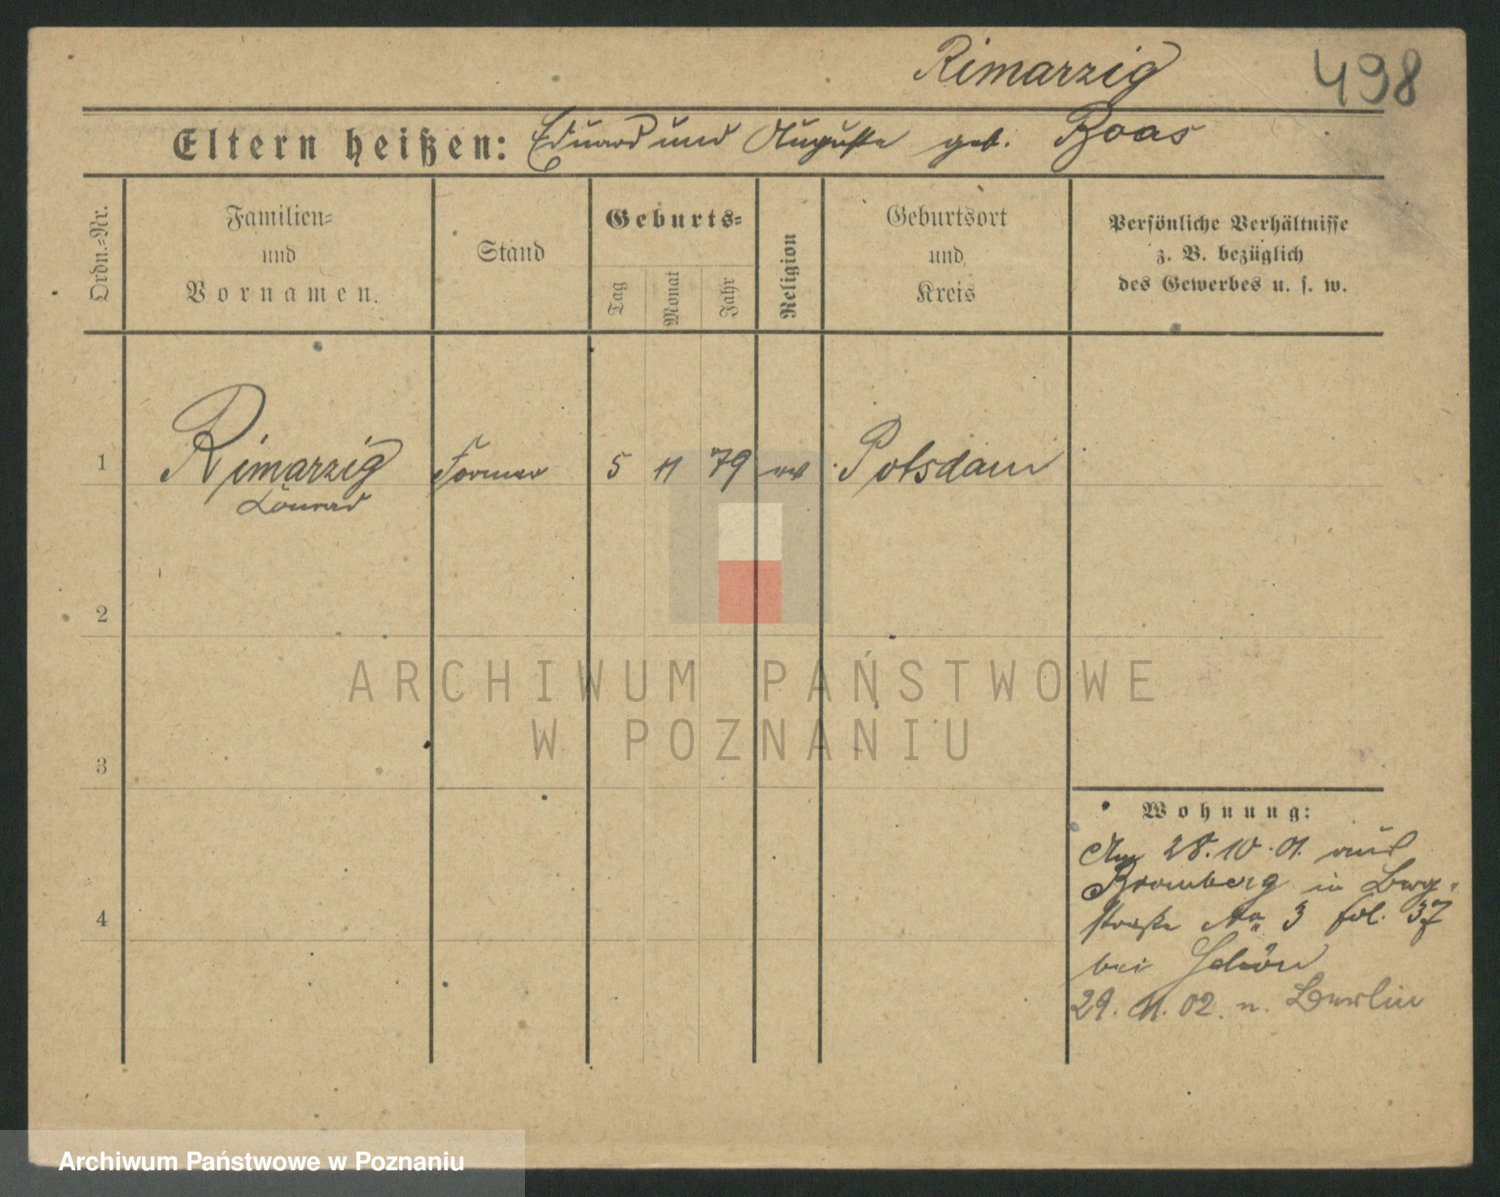 Rimarzig
498
Eltern heißen: Eduard und Auguste geb. Boas
Ordn.-Nr.
Familien-
und
Vornamen.
Stand
Geburts-
Tag
Monat
Jahr
Religion
Geburtsort
und
Kreis
Persönliche Verhältnisse
z. B. bezüglich
des Gewerbes u. s. w.
1 Rimarzig Former 5 11 79 ev Potsdam
Konrad
2
3
4
Wohnung:
Am 28.10.01. aus
Bromberg in Berg-
straße No 3 fol. 37
bei Schön
29. 11. 02. n. Berlin
ARCHIWUM PAŃSTWOWE
W POZNANIU
Archiwum Państwowe w Poznaniu